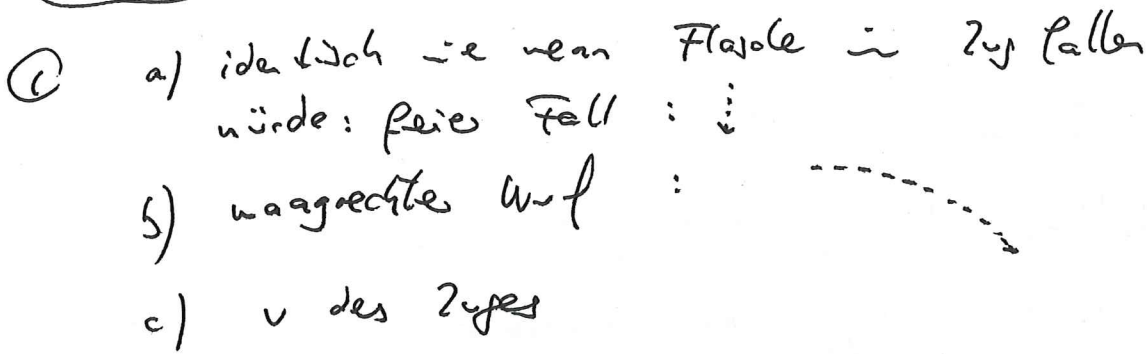 ① a) identisch wie wenn Flasche in Zug fallen
würde: freier Fall :
b) waagrechter Wurf :
c) v des Zuges